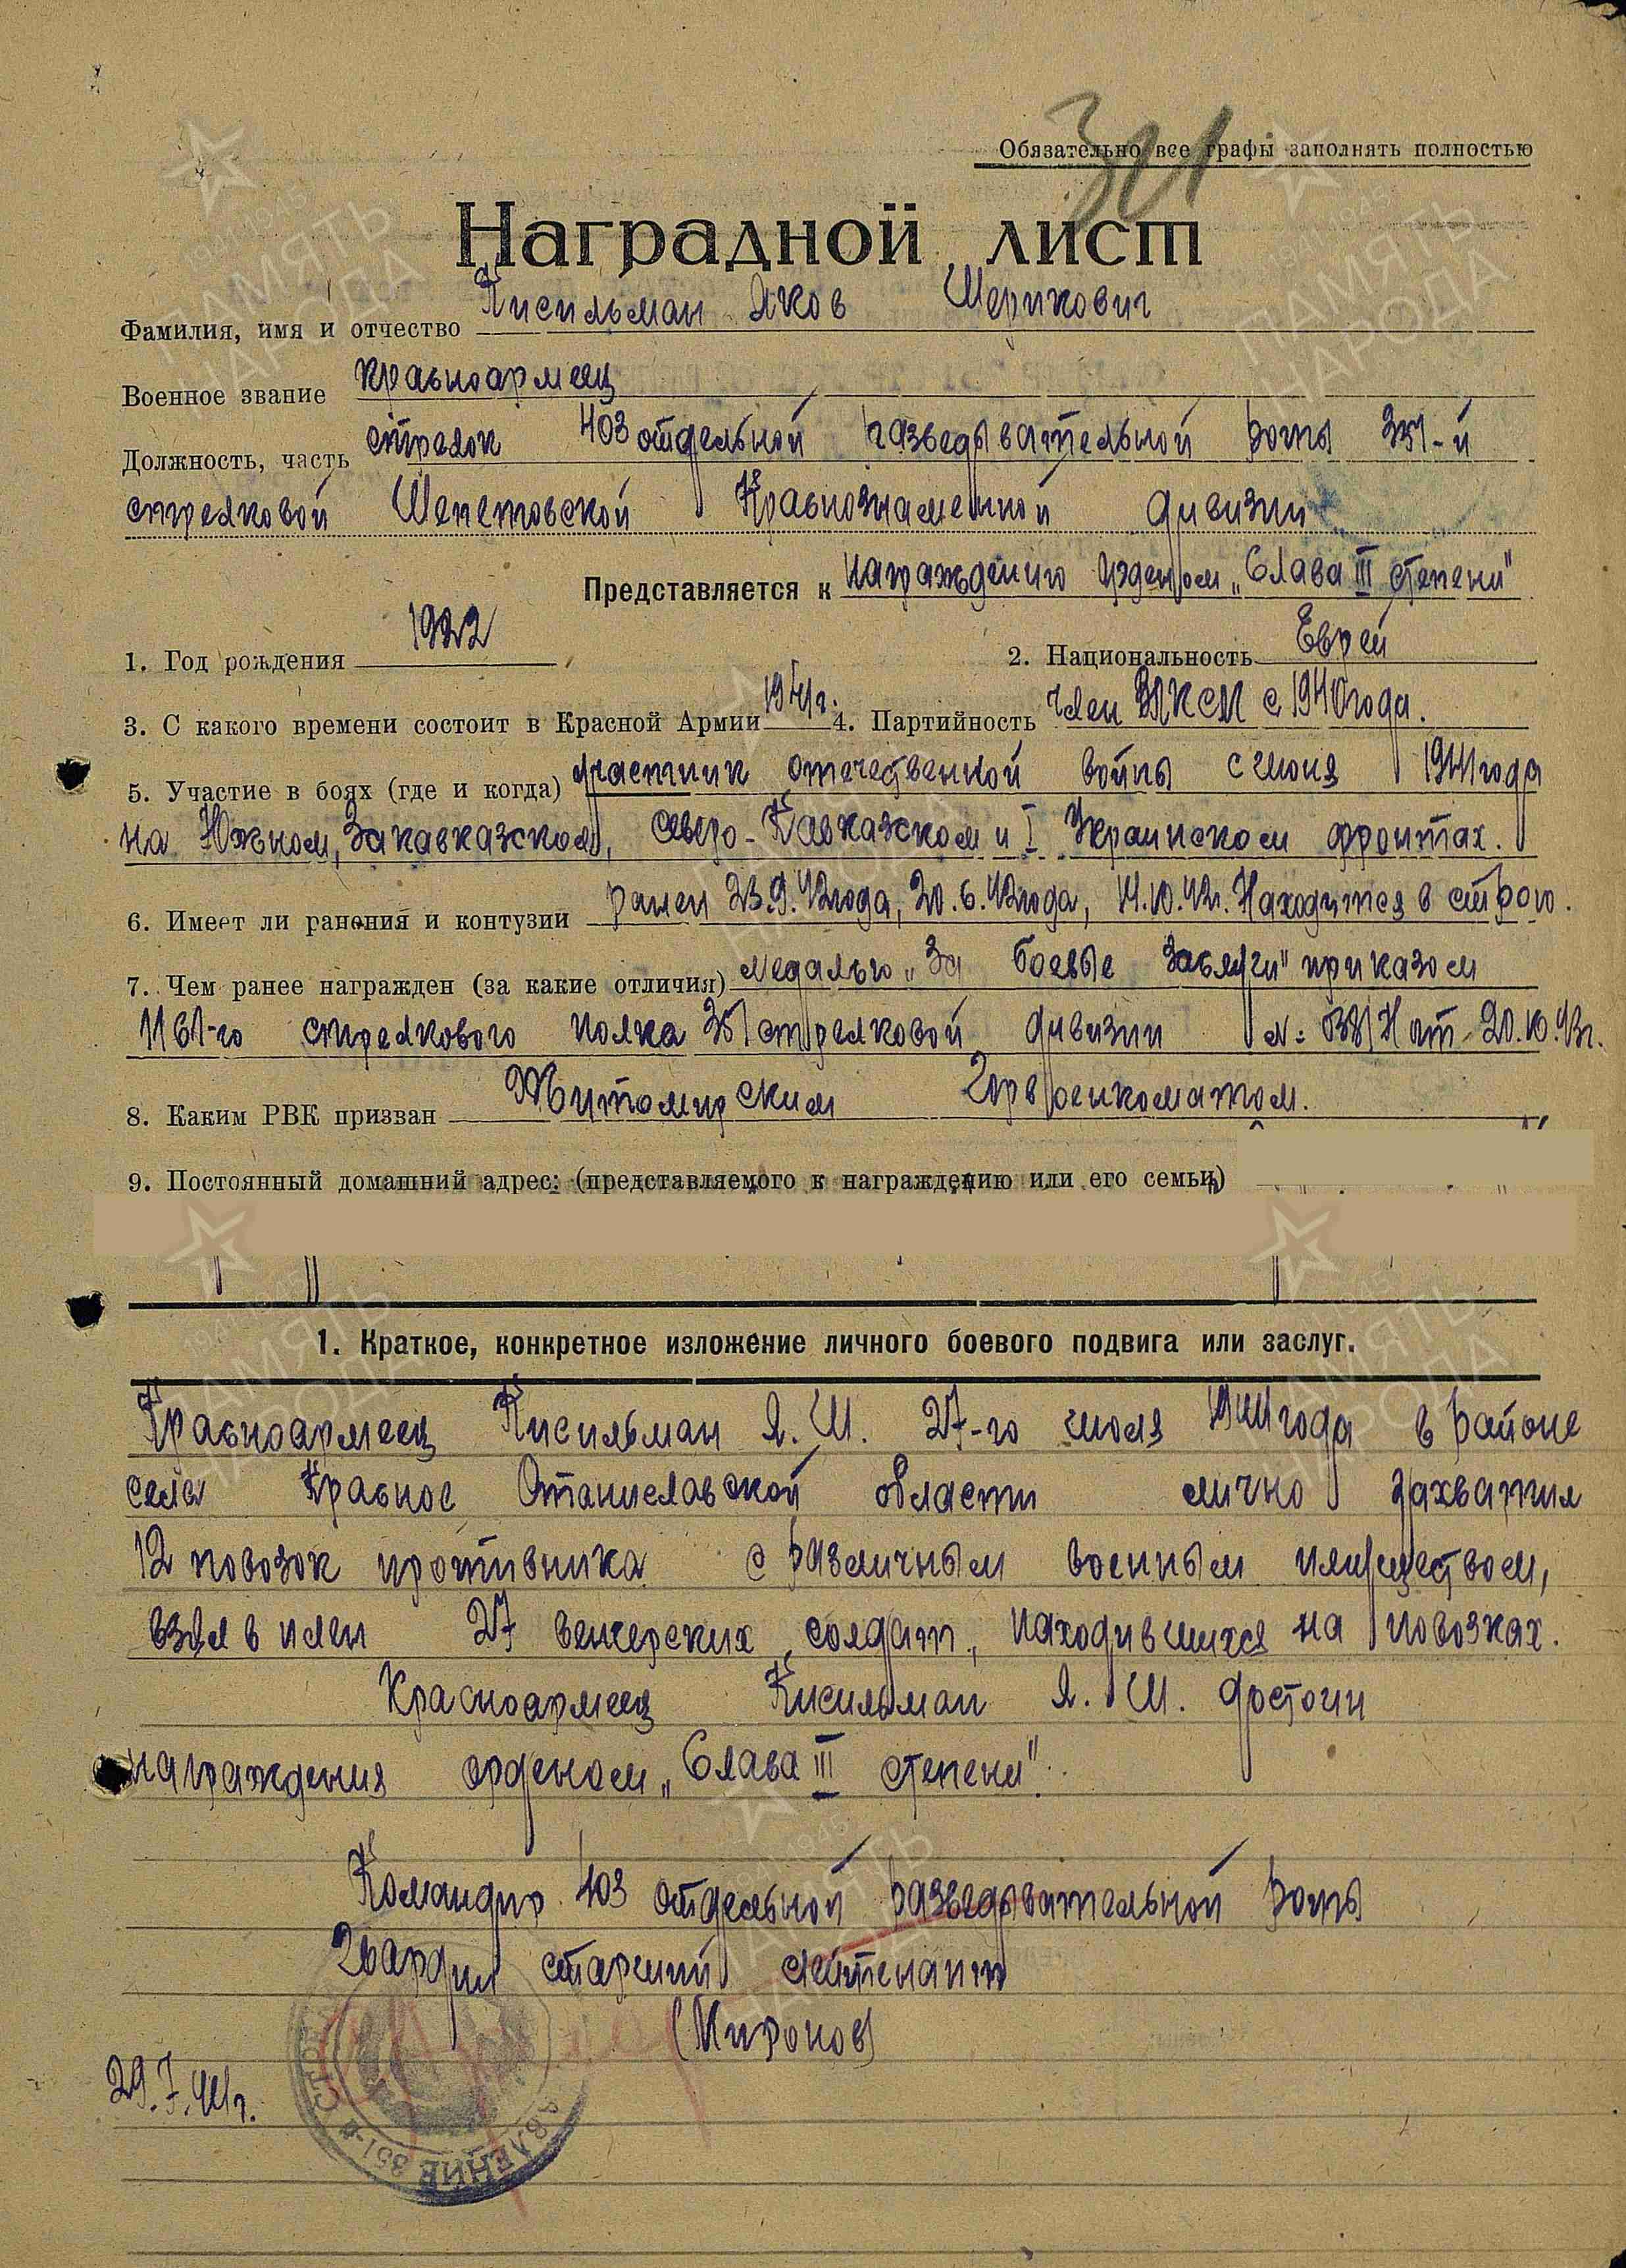 301
Обязательно все графы заполнять полностью
Наградной лист
Фамилия, имя и отчество Кисильман Яков Шерикович
Военное звание красноармеец
Должность, часть стрелок 403 отдельной разведывательной роты 351-й
стрелковой Шепетовской Краснознаменной дивизии
Представляется к награждению орденом „Слава III степени"
1. Год рождения 1922 2. Национальность Еврей
3. С какого времени состоит в Красной Армии 1941г. 4. Партийность член ВЛКСМ с 1940 года.
5. Участие в боях (где и когда) участник отечественной войны с июня 1941 года
на Южном, Закавказском, Северо-Кавказском и I Украинском фронтах.
6. Имеет ли ранения и контузии ранен 23.9.42года, 20.6.42года, 14.10.42г. Находится в строю.
7. Чем ранее награжден (за какие отличия) медалью „За боевые заслуги" приказом
1161-го стрелкового полка 351 стрелковой дивизии №: 038/Н от 20.10.43г.
8. Каким РВК призван Житомирским Горвоенкоматом.
9. Постоянный домашний адрес: (представляемого к награждению или его семьи)
1. Краткое, конкретное изложение личного боевого подвига или заслуг.
Красноармеец Кисильман Я. Ш. 27-го июля 1944 года в районе
села Красное Станиславской области лично захватил
12 повозок противника с различным военным имуществом,
взял в плен 27 венгерских солдат, находившихся на повозках.
Красноармеец Кисильман Я. Ш. достоин
награждения орденом „Слава III степени".
Командир 403 отдельной разведывательной роты
Гвардии старший лейтенант
(Миронов)
29.7.44г.